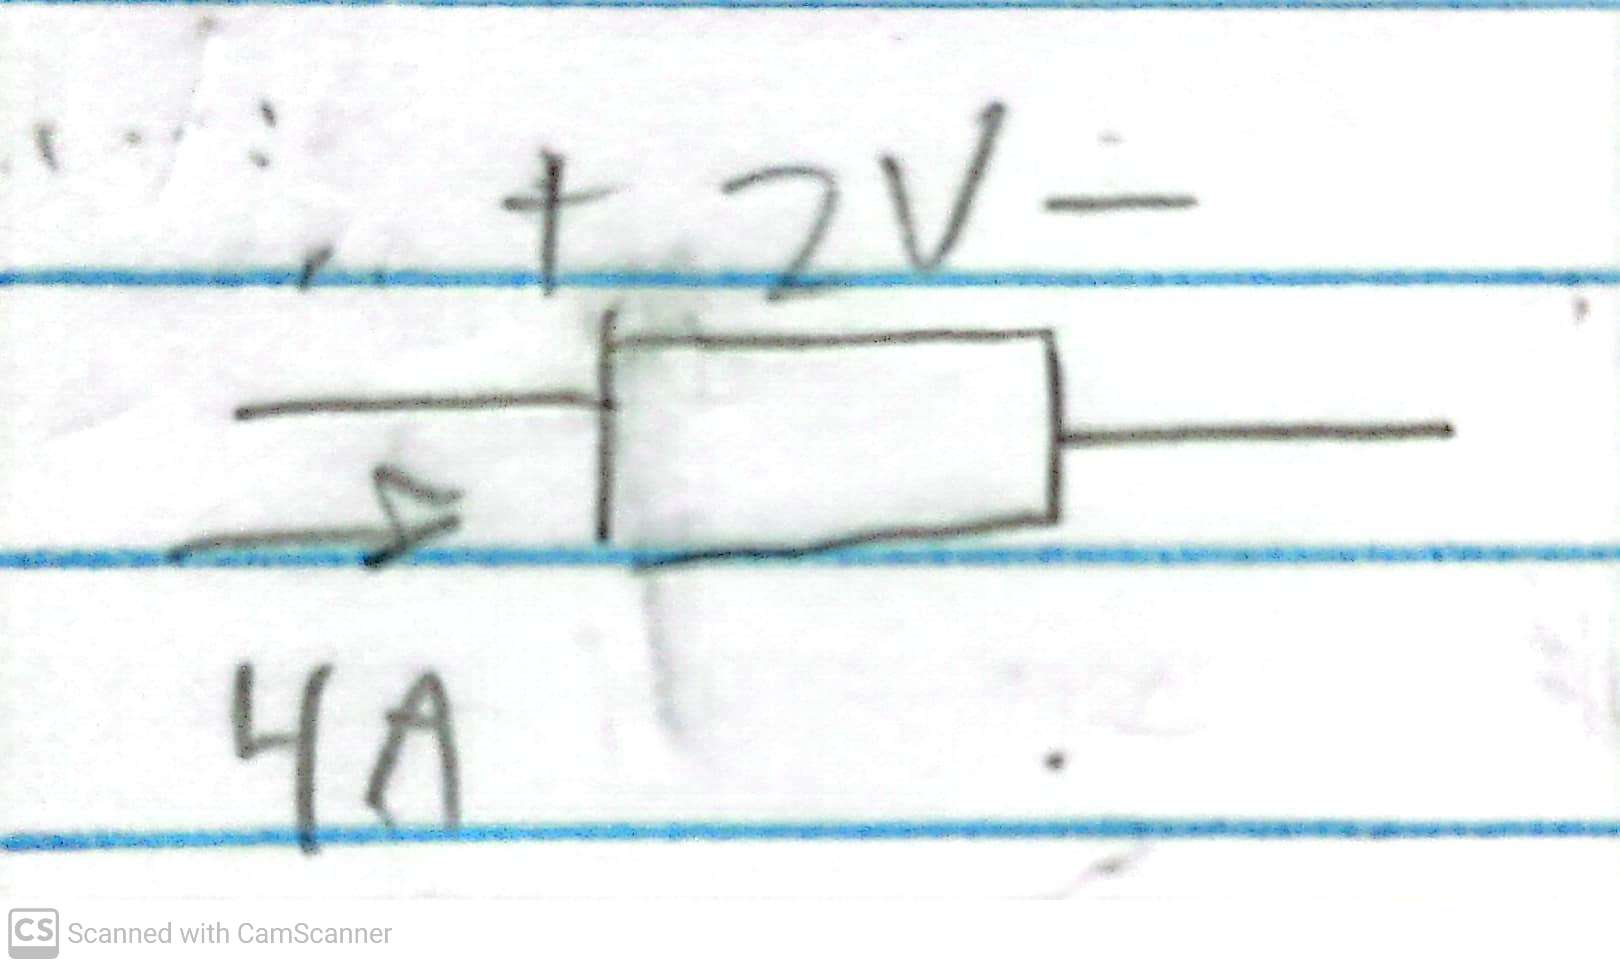 + 2V −
4A
CS Scanned with CamScanner